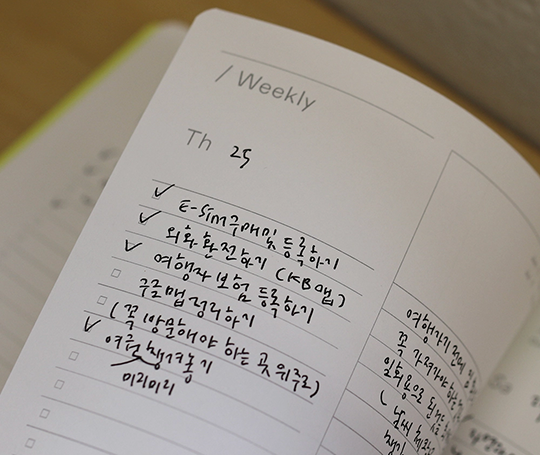 / Weekly
Th 25
E-Sim구매 및 등록하기
외화 환전하기 (KB앱)
여행자 보험 등록하기
구글맵 정리하기
(꼭 방문해야 하는 곳 위주로)
여권 챙겨놓기
미리미리
여행가기 전에
꼭 가져가야
(날씨
챙기